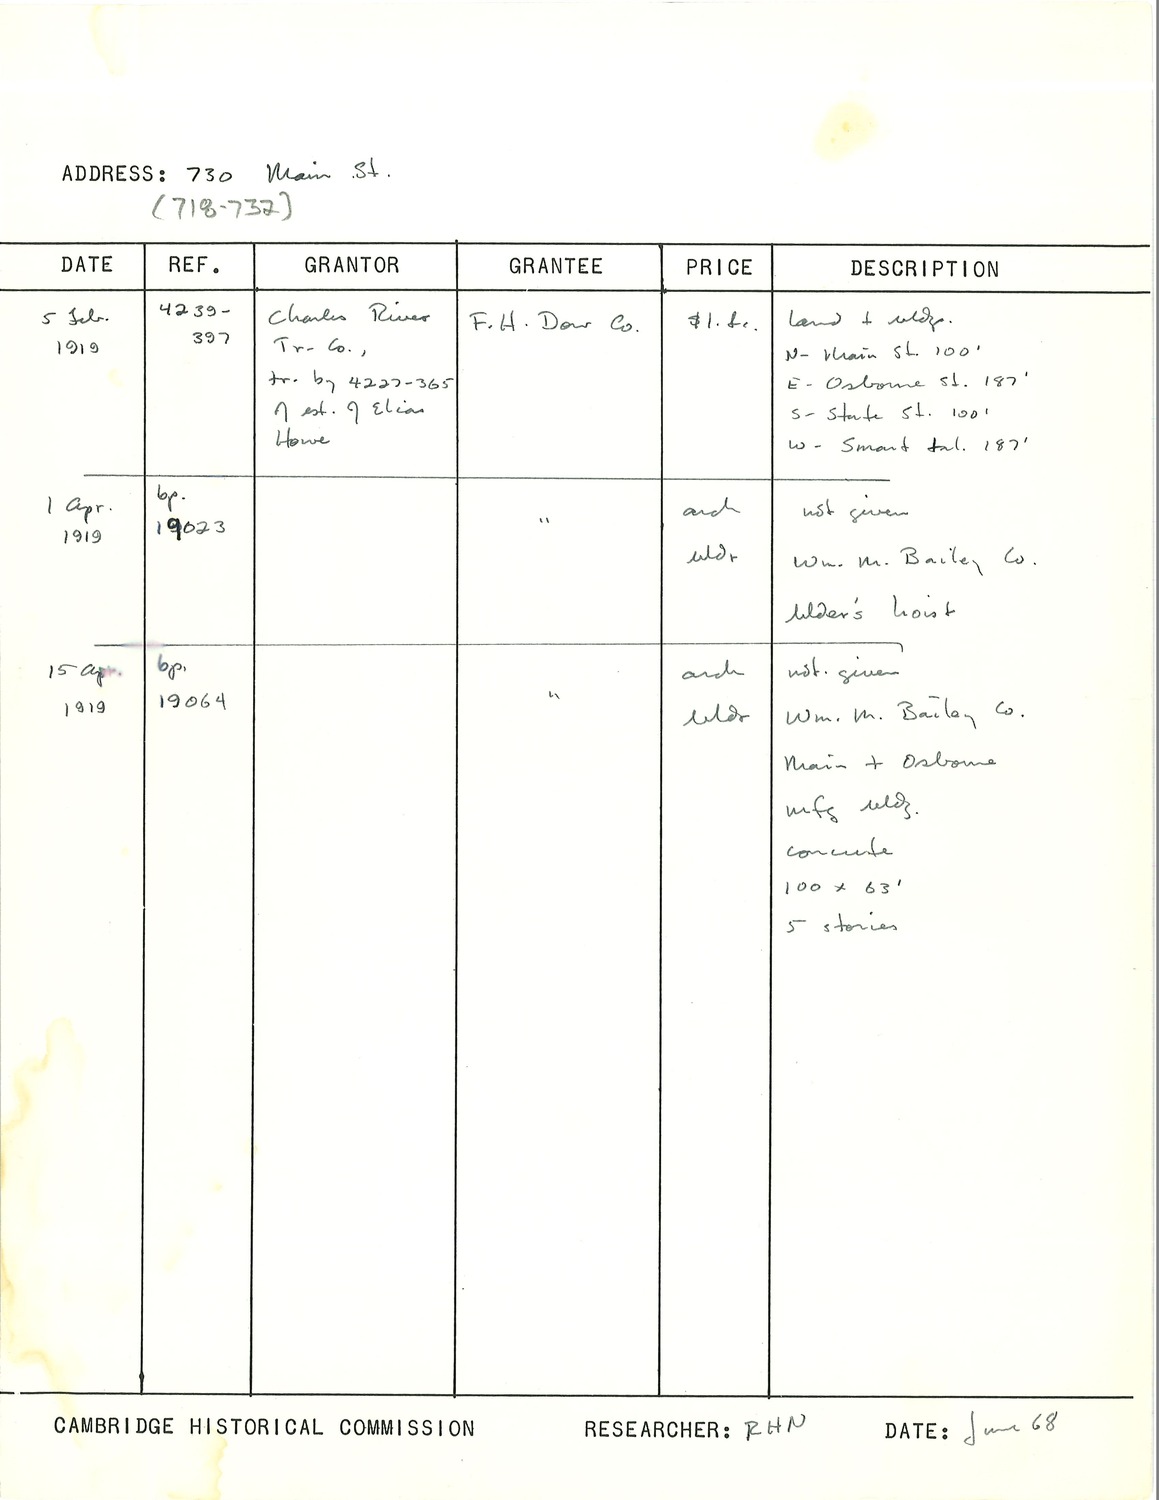 ADDRESS: 730 Main St.
(718-732)
DATE REF. GRANTOR GRANTEE PRICE DESCRIPTION
5 Feb.
1919
4239-
397
Charles River
Tr. Co.,
tr. by 4227-365
of est. of Elias
Howe
F. H. Dow Co.
$1.
land + bldgs.
N- Main St. 100'
E- Osborne St. 187'
S- State St. 100'
W- Smart et al. 187'
1 Apr.
1919
bp.
19023
"
arch
bldr
not given
Wm. M. Bailey Co.
blder's hoist
15 Apr.
1919
bp.
19064
"
arch
bldr
not given
Wm. M. Bailey Co.
Main + Osborne
mfg bldg.
concrete
100 x 63'
5 stories
CAMBRIDGE HISTORICAL COMMISSION RESEARCHER: RHN DATE: June 68